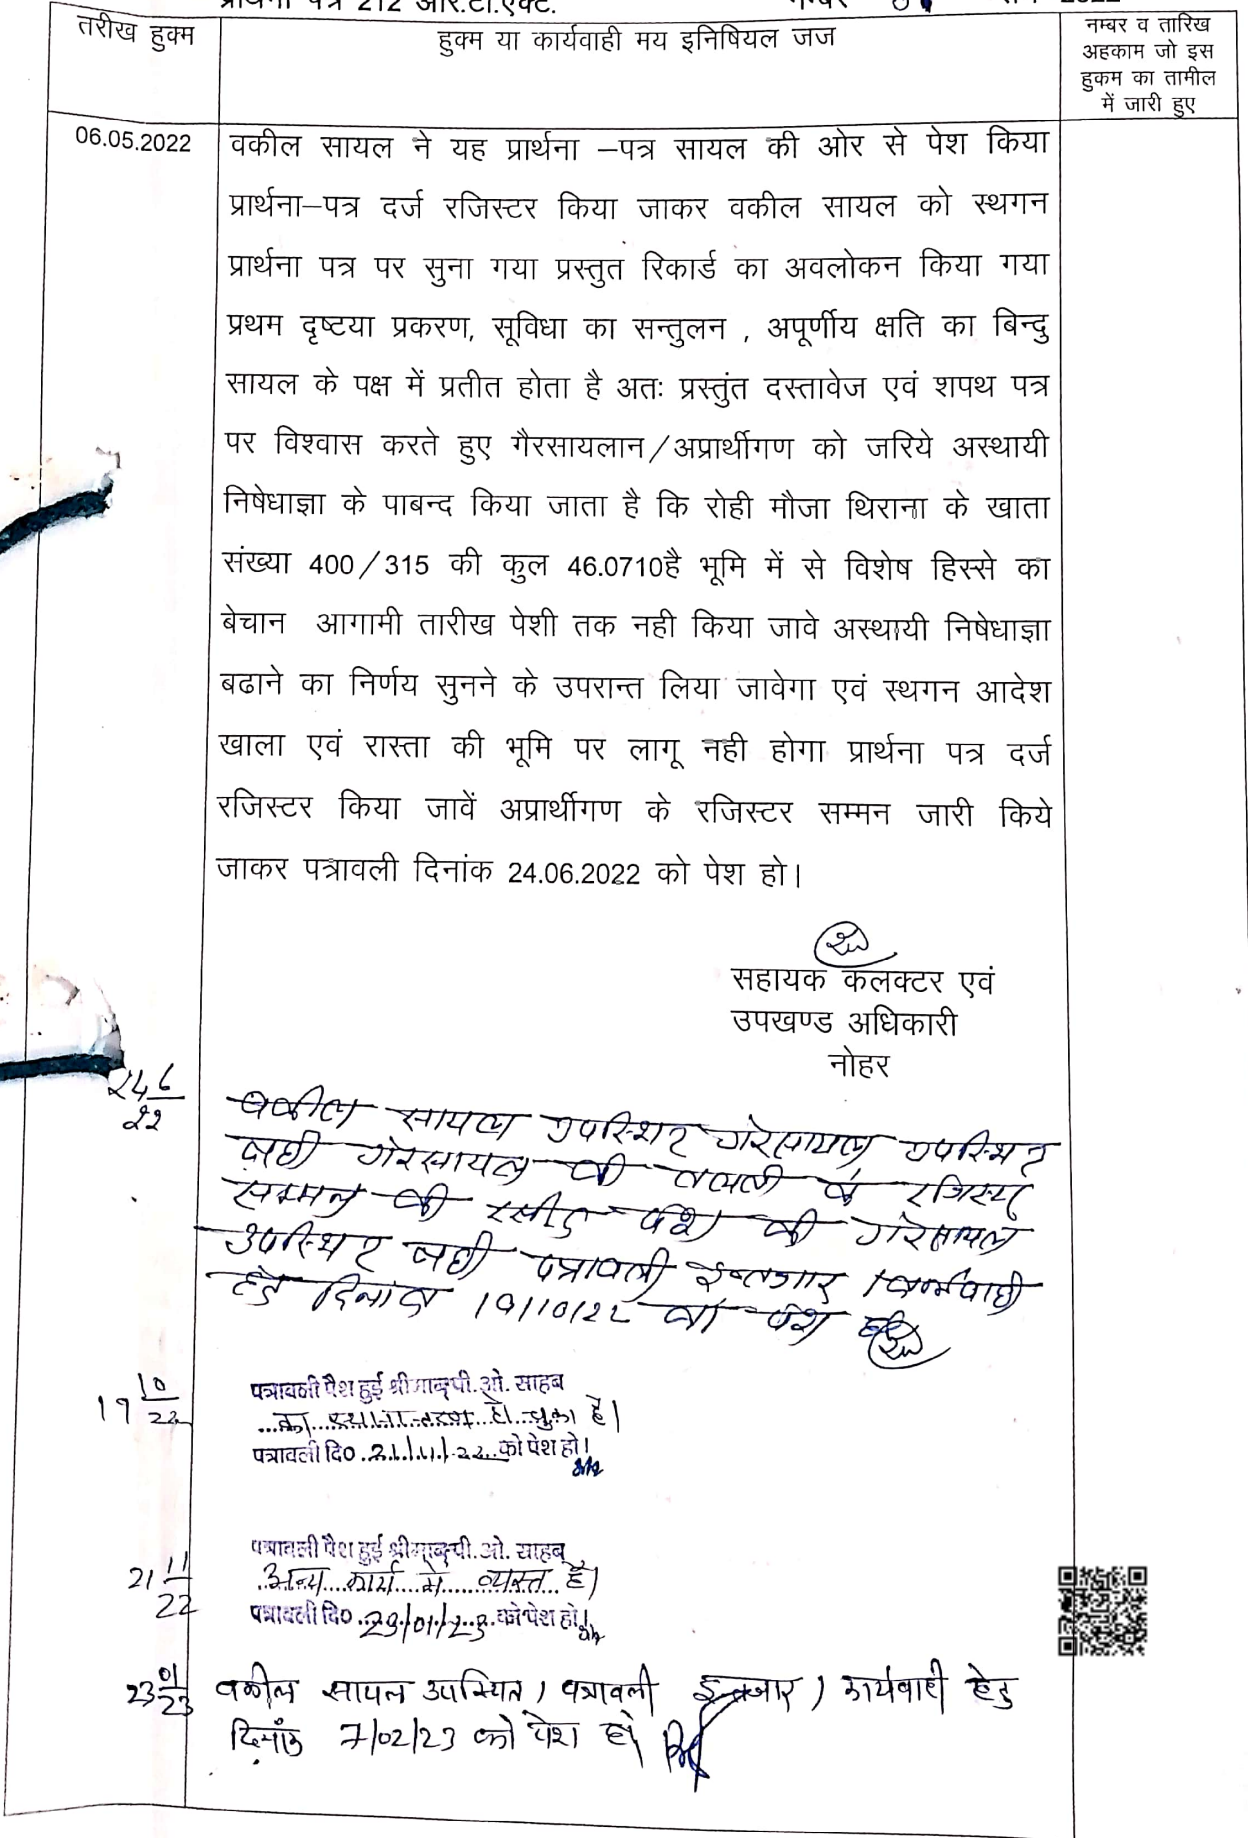 प्रार्थना पत्र 212 आर.टी.एक्ट. नम्बर 2022
तरीख हुक्म
हुक्म या कार्यवाही मय इनिषियल जज
नम्बर व तारिख
अहकाम जो इस
हुकम का तामील
में जारी हुए
06.05.2022
वकील सायल ने यह प्रार्थना –पत्र सायल की ओर से पेश किया
प्रार्थना–पत्र दर्ज रजिस्टर किया जाकर वकील सायल को स्थगन
प्रार्थना पत्र पर सुना गया प्रस्तुत रिकार्ड का अवलोकन किया गया
प्रथम दृष्टया प्रकरण, सूविधा का सन्तुलन , अपूर्णीय क्षति का बिन्दु
सायल के पक्ष में प्रतीत होता है अतः प्रस्तुंत दस्तावेज एवं शपथ पत्र
पर विश्वास करते हुए गैरसायलान/अप्रार्थीगण को जरिये अस्थायी
निषेधाज्ञा के पाबन्द किया जाता है कि रोही मौजा थिराना के खाता
संख्या 400/315 की कुल 46.0710है भूमि में से विशेष हिस्से का
बेचान आगामी तारीख पेशी तक नही किया जावे अस्थायी निषेधाज्ञा
बढाने का निर्णय सुनने के उपरान्त लिया जावेगा एवं स्थगन आदेश
खाला एवं रास्ता की भूमि पर लागू नही होगा प्रार्थना पत्र दर्ज
रजिस्टर किया जावें अप्रार्थीगण के रजिस्टर सम्मन जारी किये
जाकर पत्रावली दिनांक 24.06.2022 को पेश हो।
सहायक कलक्टर एवं
उपखण्ड अधिकारी
नोहर
24 6/22
वकील सायल उपस्थित गैरसायल उपस्थित
नही गैरसायल की तलबी के रजिस्टर
सम्मन की रसीद पेश की गैरसायल
उपस्थित नही पत्रावली इन्तजार / कार्यवाही
हेतु दिनांक 19/10/22 को पेश हो
19 10/22
पत्रावली पैश हुई श्रीमान् पी. ओ. साहब
का स्थानान्तरण हो चुका है।
पत्रावली दि० 21/11/22 को पेश हो।
21 11/22
पत्रावली पैश हुई श्रीमान् पी. ओ. साहब
अन्य कार्य मे व्यस्त है।
पत्रावली दि० 23/01/23 को पेश हो।
23 01/23
वकील सायल उपस्थित। पत्रावली इन्तजार / कार्यवाही हेतु
दिनांक 7/02/23 को पेश हो